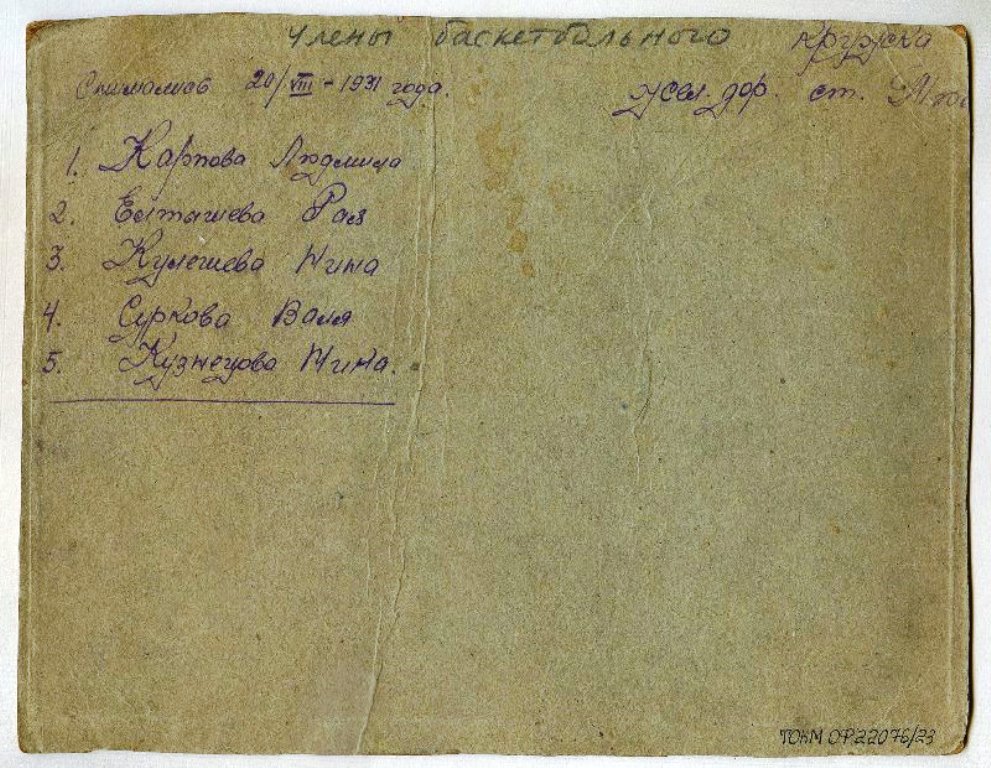 Члены баскетбольного кружка
Снимались 20/VIII-1931 года. жел. дор. ст.
1. Карпова Людмила
2. Рая
3. Кулешева Нина
4. Суркова Валя
5. Кузнецова Нина.
ТОКМ ОФ 22076/23